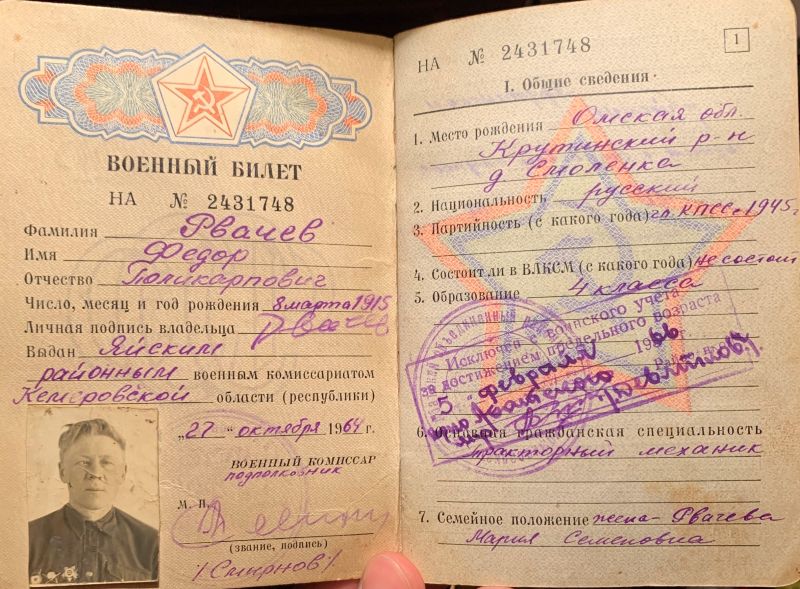 ВОЕННЫЙ БИЛЕТ
НА № 2431748
Фамилия Рвачев
Имя Федор
Отчество Поликарпович
Число, месяц и год рождения 8 марта 1915
Личная подпись владельца Рвачев
Выдан Яйским
районным военным комиссариатом
Кемеровской области (республики)
„27“ октября 1964 г.
ВОЕННЫЙ КОМИССАР
подполковник
М. П.
(звание, подпись)
/Смирнов/
НА № 2431748
1
I. Общие сведения.
1. Место рождения Омская обл.
Крутинский р-н
д. Смоленка
2. Национальность русский
3. Партийность (с какого года) чл. КПСС с 1945 г
4. Состоит ли в ВЛКСМ (с какого года) не состоит
5. Образование 4 класса
Исключен с воинского учета
за достижением предельного возраста
„5“ февраля 1966 г.
6. Основная гражданская специальность
тракторный механик
7. Семейное положение жена - Рвачева
Мария Семеновна